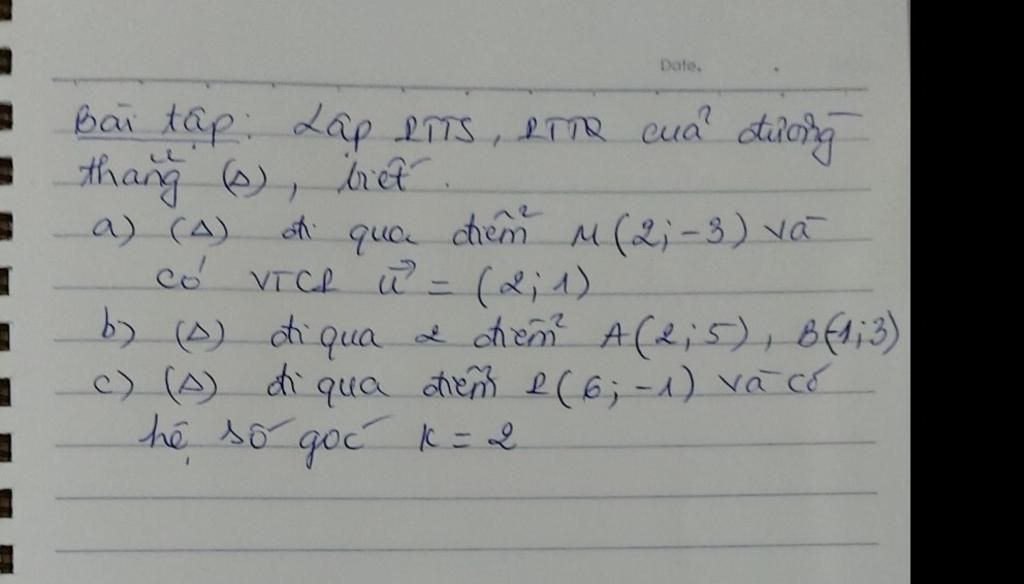 Date.
Bài tập: Lập PTTS, PTTQ của đường
thẳng (Δ), biết.
a) (Δ) đi qua điểm M(2;-3) và
có VTCP u⃗ = (2;1)
b) (Δ) đi qua 2 điểm A(2;5), B(-1;3)
c) (Δ) đi qua điểm P(6;-1) và có
hệ số góc K = 2